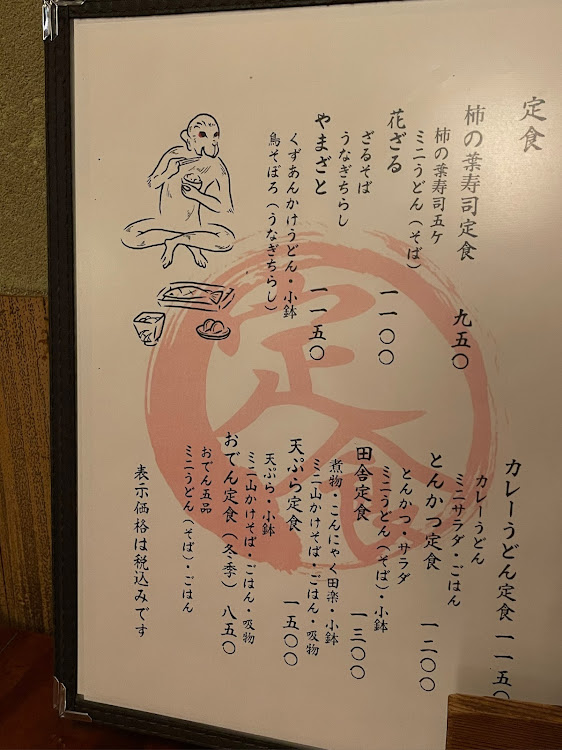 定食
柿の葉寿司定食 九五〇
柿の葉寿司五ケ
ミニうどん(そば)
花ざる 一一〇〇
ざるそば
うなぎちらし
やまざと 一一五〇
くずあんかけうどん・小鉢
鳥そぼろ(うなぎちらし)
カレーうどん定食 一一五〇
カレーうどん
ミニサラダ・ごはん
とんかつ定食 一二〇〇
とんかつ・サラダ
ミニうどん(そば)・小鉢
田舎定食 一三〇〇
煮物・こんにゃく田楽・小鉢
ミニ山かけそば・ごはん・吸物
天ぷら定食 一五〇〇
天ぷら・小鉢
ミニ山かけそば・ごはん・吸物
おでん定食(冬季) 八五〇
おでん五品
ミニうどん(そば)・ごはん
表示価格は税込みです
定食